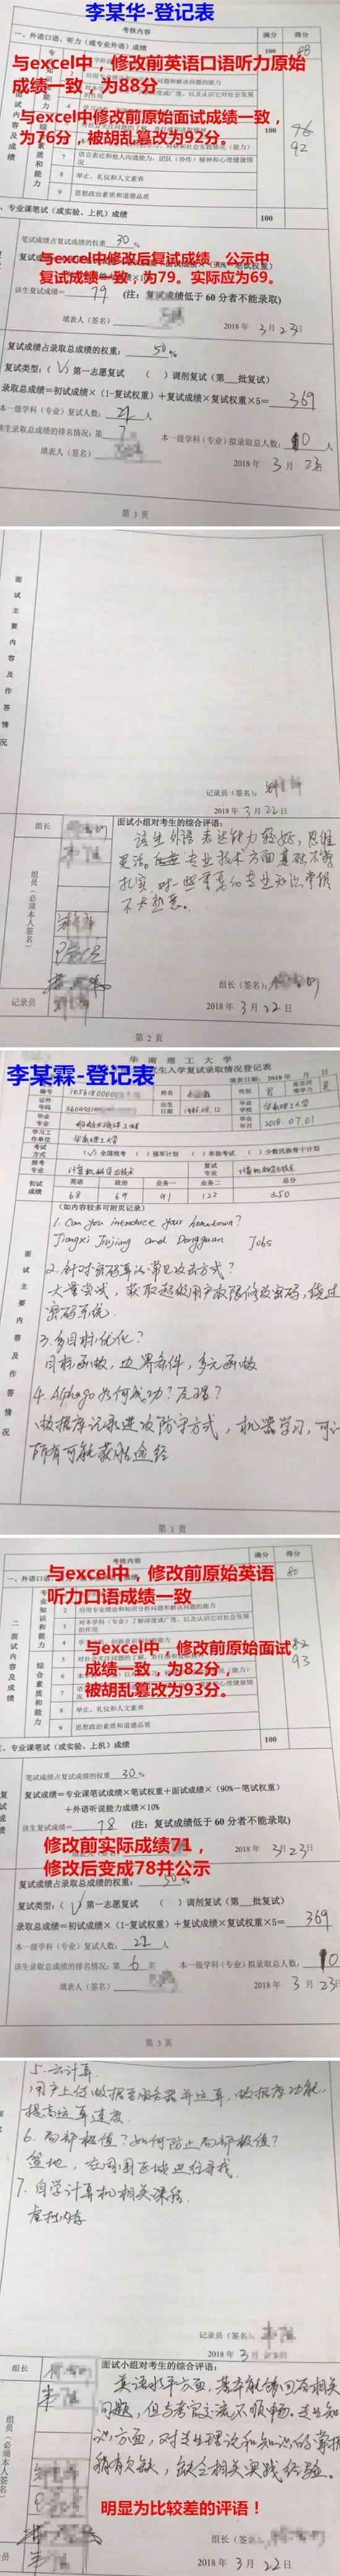 李某华-登记表
考核内容
满分
得分
一、外语口语、听力（或专业外语）成绩
100
88
与excel中，修改前英语口语听力原始
成绩一致，为88分
与excel中修改前原始面试成绩一致，
为76分，被胡乱篡改为92分。
100
92
7
语言表达和他人沟通能力、团队（协作）精神和心理健康情况
8
举止、礼仪和人文素养
9
思想政治素质和道德品质
、专业课笔试（或实验、上机）成绩
100
笔试成绩占复试成绩的权重 30 %
与excel中修改后复试成绩，公示中
复试成绩一致，为79。实际应为69。
该生复试成绩= 79 （注：复试成绩低于 60 分者不能录取）
填表人（签名）
2018 年 3 月 23 日
复试成绩占录取总成绩的权重： 50 %
复试类型：（√）第一志愿复试 （ ）调剂复试（第__批复试）
录取总成绩=初试成绩×（1-复试权重）+复试成绩×复试权重×5= 369
本一级学科（专业）复试人数： 21 人
该生录取总成绩的排名情况：第 7
本一级学科（专业）拟录取总人数： 10 人
填表人（签名）
2018 年 3 月 23 日
第 3 页
面试主要内容及作答情况
记录员（签名）：
2018 年 3 月 22 日
组长
面试小组对考生的综合评语：
该生外语表达能力较好，思维
灵活。但在专业技术方面基础不够
扎实，对一些重要的专业知识掌握
不太熟悉。
组员（必须本人签名）
组长（签名）：
记录员
2018 年 3 月 22 日
第 2 页
华南理工大学
李某霖-登记表
究生入学复试录取情况登记表
填表日期：2018 年 月 日
编号
姓名
性别
男
证件号码
出生日期
毕业学校
华南理工大学
毕业专业
毕业年月
2018.07.01
学习工作单位
华南理工大学
考试方式
（√）全国统考 （ ）强军计划 （ ）单独考试 （ ）少数民族骨干计划
报考专业
计算机科学与技术
复试专业
计算机科学与技术
初试成绩
英语
政治
业务一
业务二
总分
68
69
91
122
350
（如内容较多可附页记录）
1. Can you introduce your hometown?
Jiangxi Jiujiang and Dongguan Jobs
2. 针对密码算法常见攻击方式？
大量尝试，获取超级用户权限修改密码，绕过
密码系统.
3. 多目标优化？
目标函数，边界条件，多元函数
4. Alphago 为何成功？原理？
数据库记录进攻防守方式，机器学习，可
所有可能获胜途径
面试主要内容及作答情况
第 1 页
考核内容
满分
得分
一、外语口语
80
与excel中，修改前原始英语
听力口语成绩一致
2
应用专业理论和知识分析问题和解决问题的能力
3
对本学科（专业）了解深度或广度，以及认识它对社会发展的作用
与excel中，修改前原始面试
成绩一致，为82分，
被胡乱篡改为93分。
82
93
二面试内容及成绩
专业知识和能力
综合素质和能力
8
举止、礼仪和人文素养
9
思想政治素质和道德品质
、专业课笔试（或实验、上机）成绩
100
笔试成绩占复试成绩的权重 30 %
复试成绩=专业课笔试成绩×笔试权重+面试成绩×（90%-笔试权重）
+外语听说能力成绩×10%
该生复试成绩= 78 （注：复试成绩低于 60 分者不能录取）
修改前实际成绩71，
修改后变成78并公示
2018年 3月 23日
复试成绩占录取总成绩的权重： 50 %
复试类型：（√）第一志愿复试 （ ）调剂复试（第__批复试）
录取总成绩=初试成绩×（1-复试权重）+复试成绩×复试权重×5= 369
本一级学科（专业）复试人数： 21 人
该生录取总成绩的排名情况：第 6 名
本一级学科（专业）拟录取总人数： 10
填表人（签名）
2018 年 3 月 23 日
第 3 页
5. 云计算.
用户上传数据至服务器并运算，数据库功能，
提高运算速度.
6. 局部极值？如何防止局部极值？
盆地，在周围区域进行寻找.
7. 自学计算机相关课程.
虚拟内存
记录员（签名）：
2018 年 3 月
组长
面试小组对考生的综合评语：
英语水平方面，基本能够回答相关
问题，但与考官交流不顺畅. 专业知
识方面，对专业理论和知识的掌握
稍有欠缺，缺乏相关实践经验.
明显为比较差的评语！
组员（必须本人签名）
组长（签名）：
2018 年 3 月 22 日